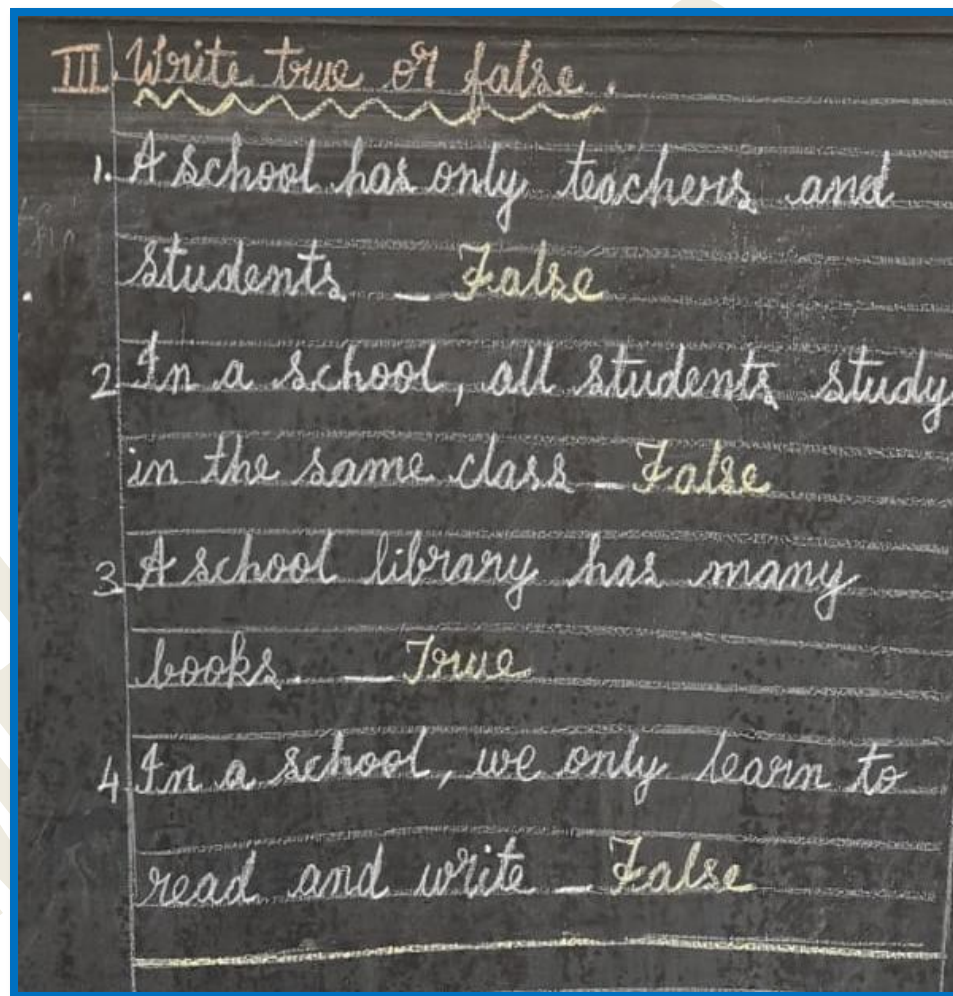 III. Write true or false.
1. A school has only teachers and
students _ False
2 In a school, all students study
in the same class _ False
3 A school library has many
books. _ True
4 In a school, we only learn to
read and write _ False